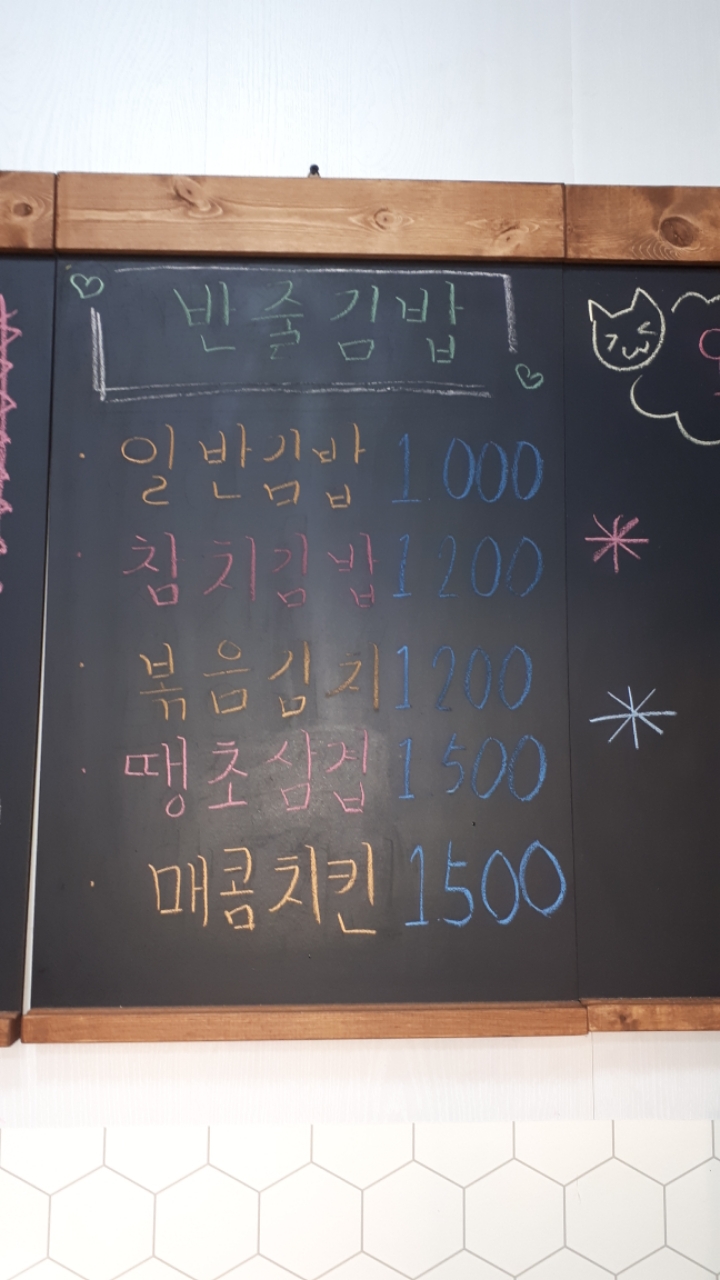 반줄김밥
· 일반김밥 1000
· 참치김밥 1200
· 볶음김치 1200
· 땡초삼겹 1500
· 매콤치킨 1500